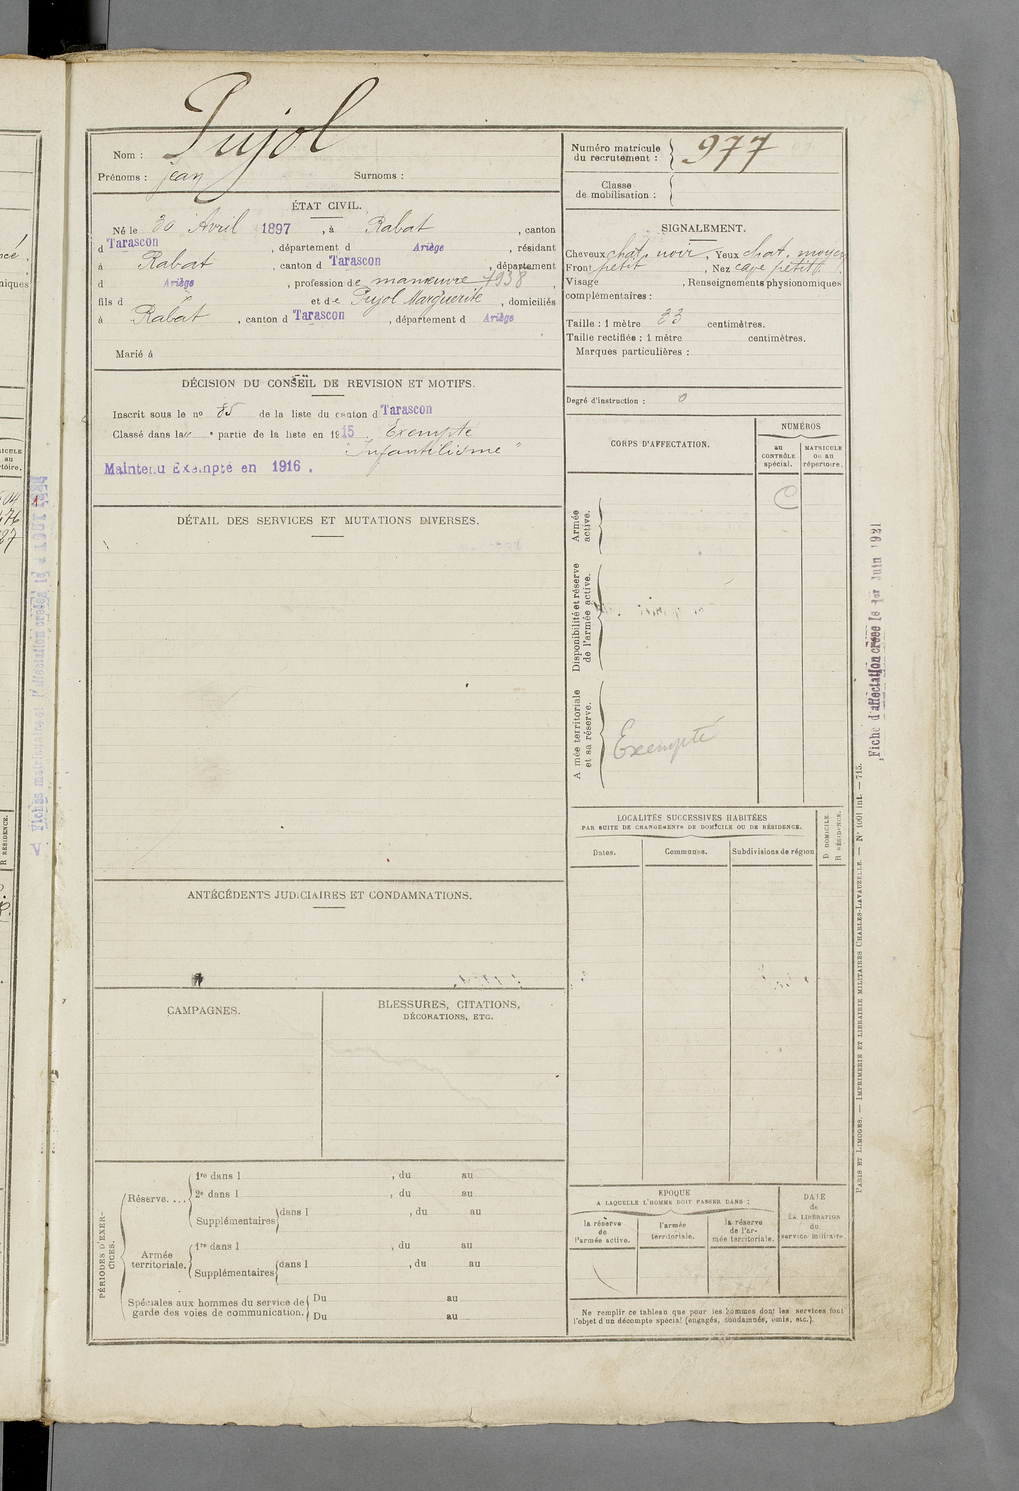 Pujol
Nom :
Prénoms : jean Surnoms :
Numéro matricule
du recrutement : 977
Classe
de mobilisation :
ÉTAT CIVIL.
Né le 30 Avril 1897, à Rabat, canton
d Tarascon, département d Ariège, résidant
à Rabat, canton d Tarascon, département
d Ariège, profession de manœuvre
fils d et de Pujol Marguerite, domiciliés
à Rabat, canton d Tarascon, département d Ariège
Marié à
SIGNALEMENT.
Cheveux chat. noir, Yeux chat. moyen
Front petit, Nez cave petit
Visage , Renseignements physionomiques
complémentaires :
Taille : 1 mètre 33 centimètres.
Taille rectifiée : 1 mètre centimètres.
Marques particulières :
Degré d'instruction : 0
DÉCISION DU CONSEIL DE REVISION ET MOTIFS.
Inscrit sous le no 85 de la liste du canton d Tarascon
Classé dans la e partie de la liste en 1915. Exempté
"Infantilisme"
Maintenu Exempté en 1916.
CORPS D'AFFECTATION.
NUMÉROS
au
CONTRÔLE
spécial.
MATRICULE
ou au
répertoire.
Armée
active.
C
Disponibilité et réserve
de l'armée active.
Armée territoriale
et sa réserve.
Exempté
DÉTAIL DES SERVICES ET MUTATIONS DIVERSES.
LOCALITÉS SUCCESSIVES HABITÉES
PAR SUITE DE CHANGEMENTS DE DOMICILE OU DE RÉSIDENCE.
D DOMICILE.
R RÉSIDENCE.
Dates. Communes. Subdivisions de région
ANTÉCÉDENTS JUDICIAIRES ET CONDAMNATIONS.
CAMPAGNES.
BLESSURES, CITATIONS,
DÉCORATIONS, ETC.
PÉRIODES D'EXER-
CICES.
Réserve....
1re dans l , du au
2e dans l , du au
Supplémentaires dans l , du au
Armée
territoriale.
1re dans l , du au
Supplémentaires dans l , du au
Spéciales aux hommes du service de
garde des voies de communication.
Du au
Du au
EPOQUE
A LAQUELLE L'HOMME DOIT PASSER DANS :
la réserve
de
l'armée active.
l'armée
territoriale.
la réserve
de l'ar-
mée territoriale.
DATE
de
LA LIBÉRATION
du
service militaire.
Ne remplir ce tableau que pour les hommes dont les services font
l'objet d'un décompte spécial (engagés, condamnés, omis, etc.).
Fiche d'affectation créée le 1er Juin 1921
PARIS ET LIMOGES. — IMPRIMERIE ET LIBRAIRIE MILITAIRES CHARLES-LAVAUZELLE. — No 1001 int. — 715.
R RÉSIDENCE.